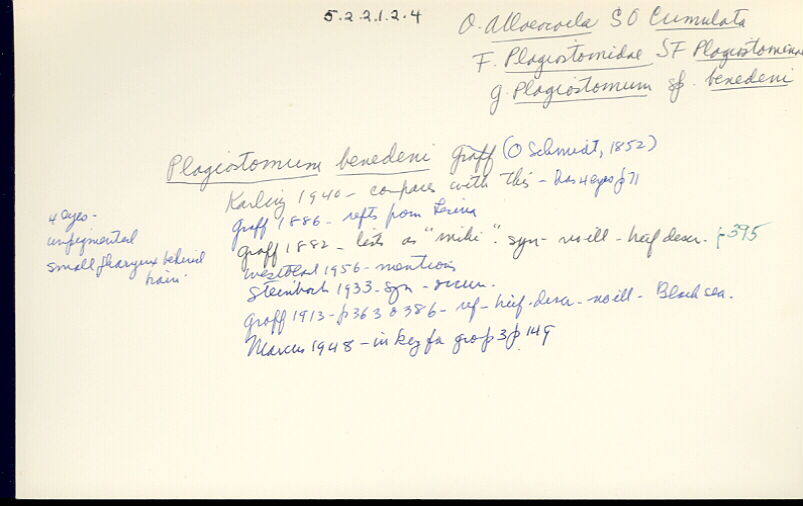 5.2.2.1.2.4
O. Alloeocoela SO Cumulata
F. Plagiostomidae SF Plagiostominae
g. Plagiostomum sp. benedeni
Plagiostomum benedeni Graff (O Schmidt, 1852)
Karling 1940 - compares with this - has 4 eyes p 71
Graff 1886 - repts from Lesina
Graff 1882 - lists as "mihi". syn - no ill - brief descr. p 395
Westblad 1956 - mentions
Steinbock 1933 - syn - occurr.
Graff 1913 - p 363 & 386 - ref - brief descr - no ill - Black sea.
Marcus 1948 - in key for group 3 p 149
4 eyes -
unpigmented
small pharynx behind
brain.